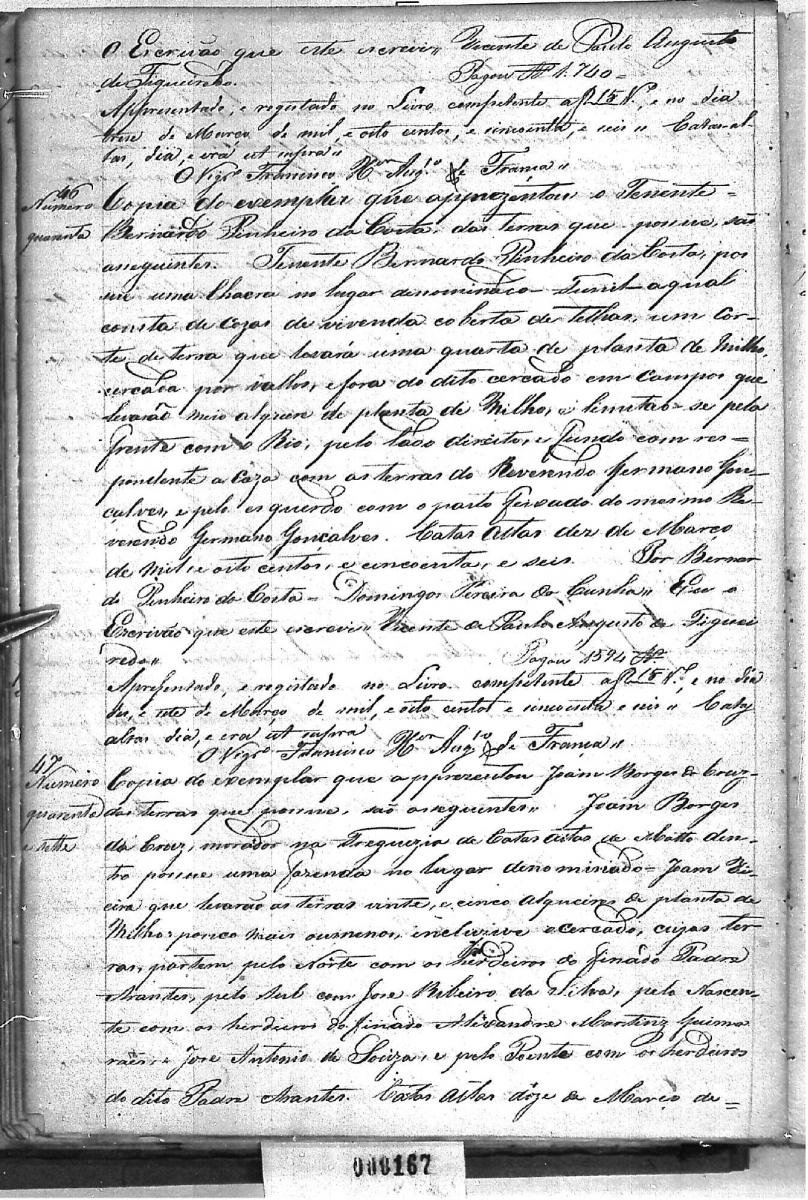 O Escrivão que este escrevi,, Vicente de Paulo Augusto
de Figueiredo. Pagou Rs 1.740=
Appresentado, e registado no Livro competente a f 15 Vo, e no dia
treze de Março de mil, e oito centos, e cincoenta, e seis,, Catas-al-
tas, dia, e erá ut supra,,
O Vigro Francisco Xer Augo de França,,
46
Numero
quarenta
Copia do exemplar que apprezentou o Tenente=
Bernardo Pinheiro da Costa, das terras que possue, são
aseguintes. Tenente Bernardo Pinheiro da Costa, pos
sue uma Chacra no lugar denominado= =aqual
consta de cazas de vivenda coberta de telhas, um cor-
te de terra que levará uma quarta de planta de Milho,
cercada por vallos, e fora do dito cercado em Campos que
levarão meio alqueire de planta de Milho, e limitão=se pela
frente com o Rio, pelo lado direito, e fundo com res-
pondente a Caza com as terras do Reverendo Germano Gon-
çalves, e pelo esquerdo com o pasto feixado do mesmo Re-
verendo Germano Gonçalves. Catas Altas dez de Março
de mil, e oito centos, e cincoenta, e seis. Por Bernar
do Pinheiro da Costa= Domingos Pereira da Cunha,, Eu o
Escrivão que este escrevi,, Vicente de Paulo Augusto de Figuei
redo,, Pagou 1594 Rs
Apresentado, e registado no Livro competente a f 15 Vo, e no dia
de Março de mil, e oito centos e cincoenta e seis,, Catas
altas dia, e erá ut supra
O Vigro Francisco Xer Augo de França,,
47
Numero
quarenta
e sette
Copia do exemplar que apprezentou Joam Borges da Cruz=
das terras que possue, são aseguintes,, Joam Borges
da Cruz, morador na Freguezia de Catas Altas de Matto den-
tro possue uma fazenda no lugar denominado= Joam
que levarão as terras vinte, e cinco alqueires de planta de
Milho, pouco mais oumenos, incluzive o cercado, cujas ter
ras, partem pelo Norte com os herdeiros do finádo Padre
Arantes, pelo Sul com Jose Ribeiro da Silva, pelo Nascen-
te com os herdeiros do finado Alixandre Martinz Guima
raens, e Jose Antonio de Souza, e pelo Poente com os herdeiros
do dito Padre Arantes. Catas Altas dôze de Março de=
000167